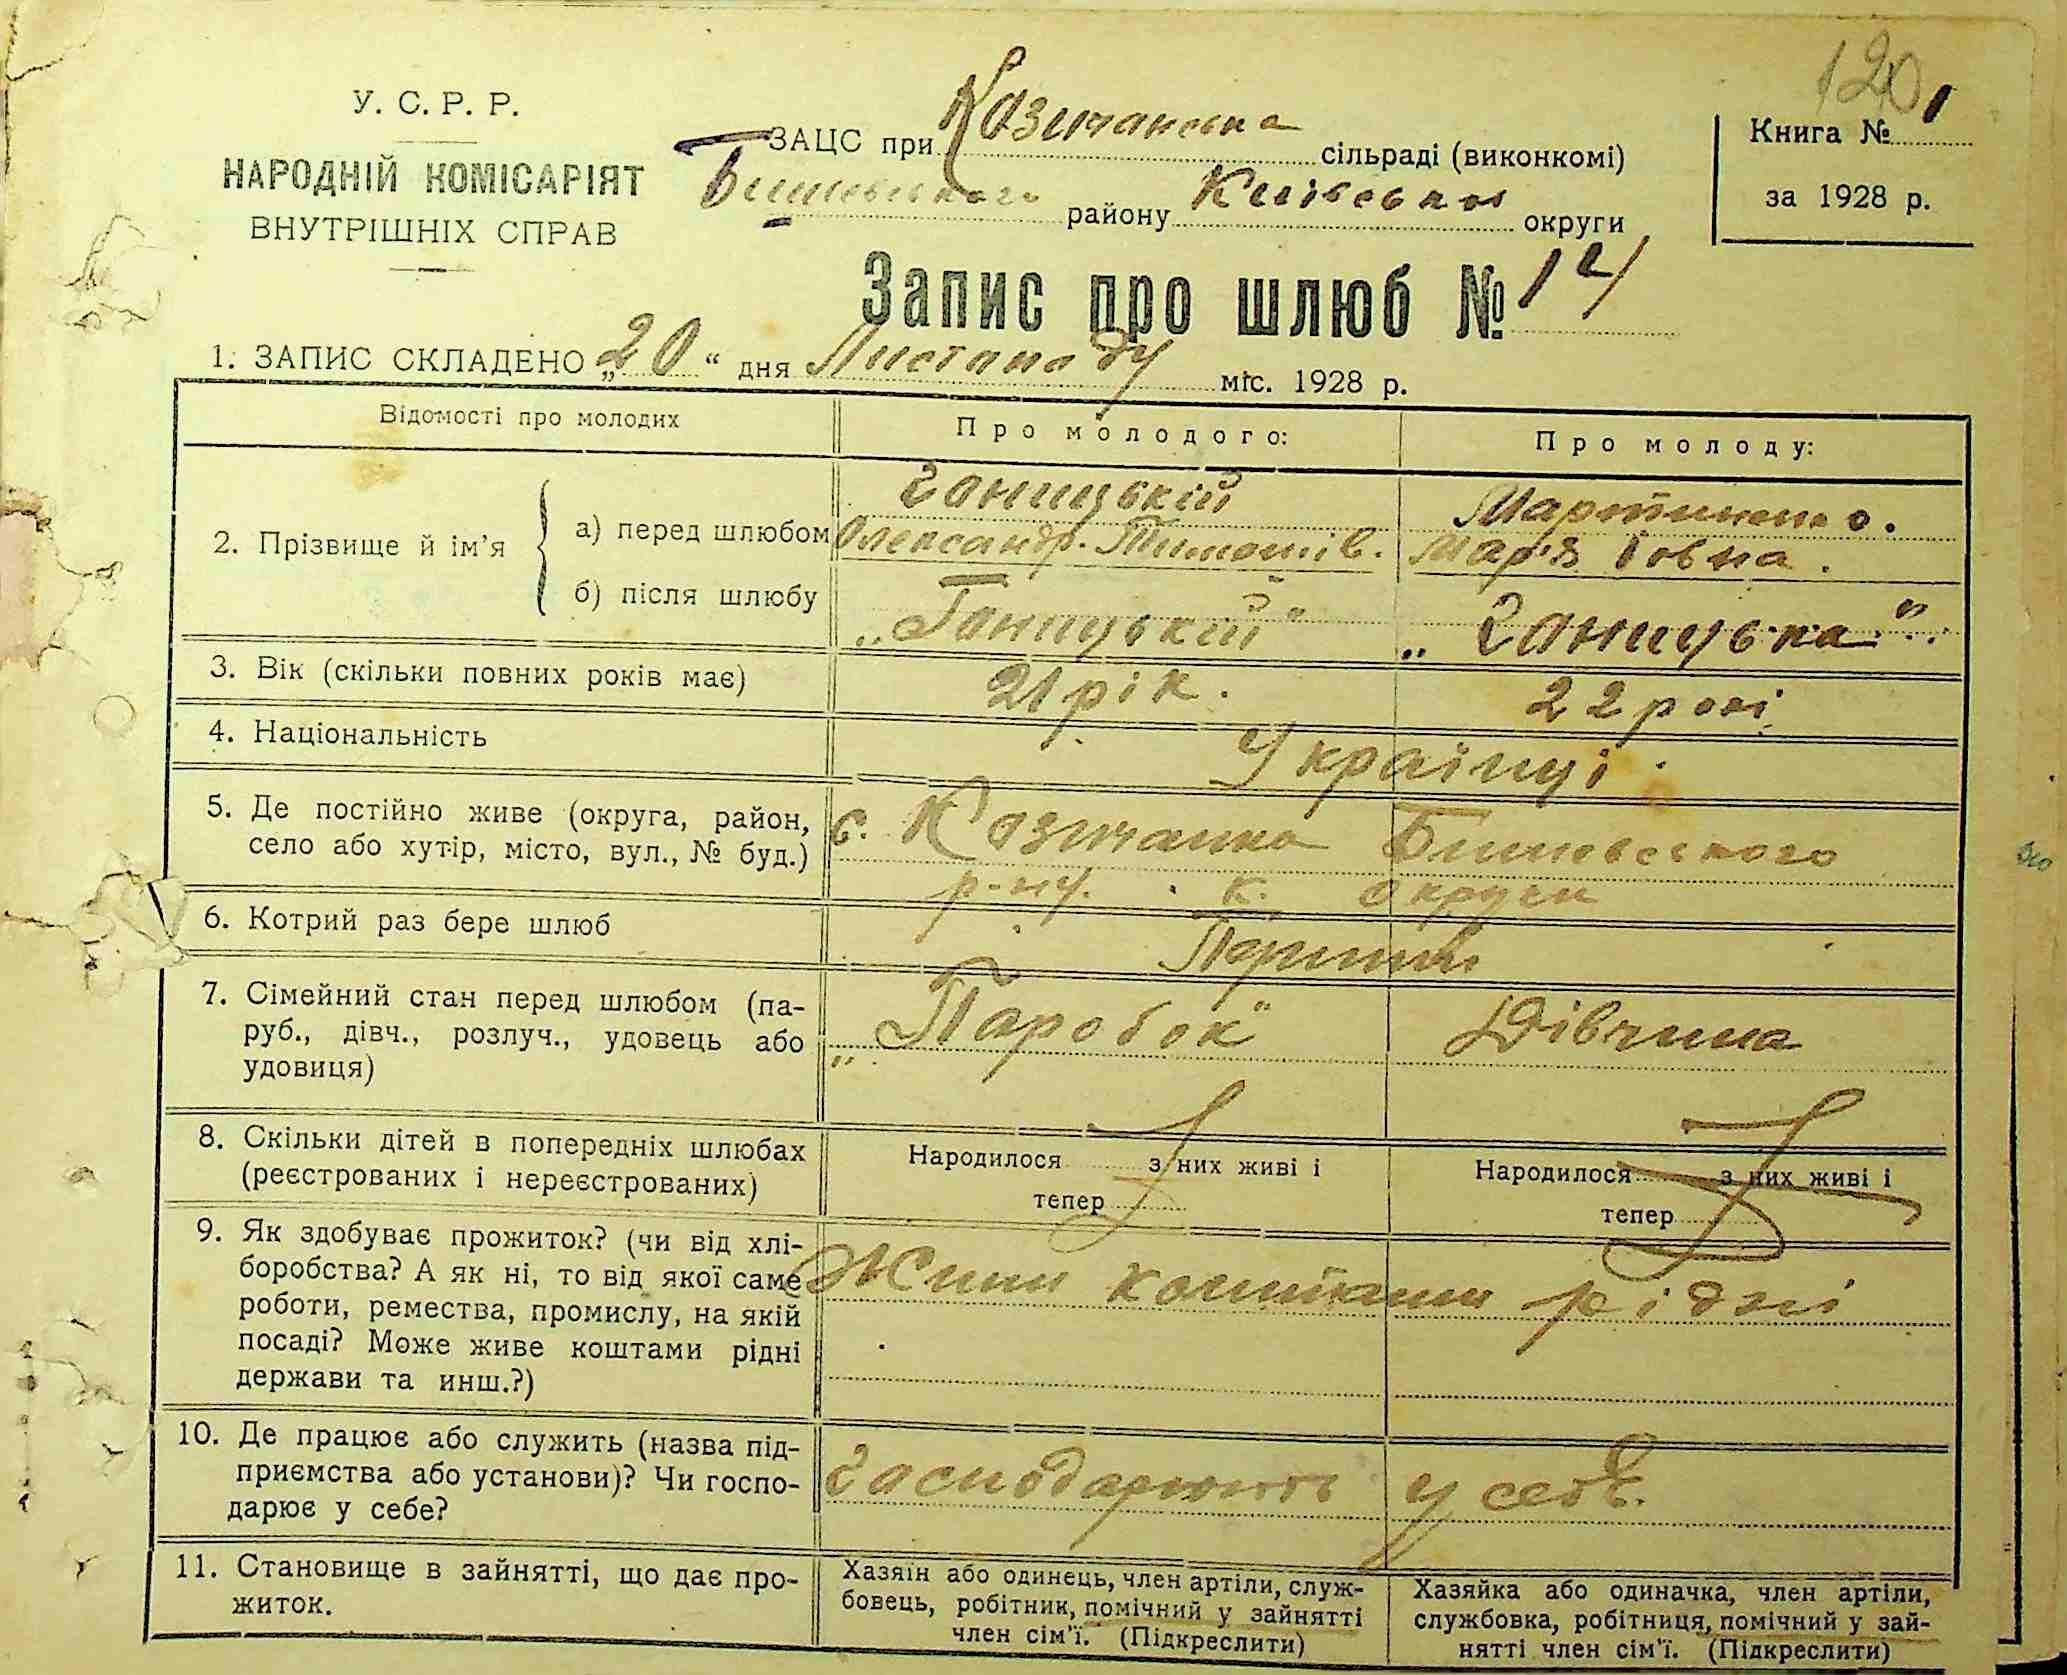 120
У. С. Р. Р.
НАРОДНІЙ КОМІСАРІЯТ
ВНУТРІШНІХ СПРАВ
ЗАЦС при Козичанська сільраді (виконкомі)
Бишевського району Київської округи
Книга № 1
за 1928 р.
Запис про шлюб № 14
1. ЗАПИС СКЛАДЕНО „20“ дня Листопаду міс. 1928 р.
Відомості про молодих
Про молодого:
Про молоду:
2. Прізвище й ім’я
а) перед шлюбом
Ганицький
Олександр. Тимошів.
Мартиненко.
Мар'я Іовна.
б) після шлюбу
„Ганицький“
„Ганицька“.
3. Вік (скільки повних років має)
21 рік.
22 рокі
4. Національність
Українці.
5. Де постійно живе (округа, район,
село або хутір, місто, вул., № буд.)
с. Козичанка Бишевського
р-ну. К. округи
6. Котрий раз бере шлюб
Перший
7. Сімейний стан перед шлюбом (па-
руб., дівч., розлуч., удовець або
удовиця)
„Паробок“
Дівчина
8. Скільки дітей в попередніх шлюбах
(реєстрованих і нереєстрованих)
Народилося з них живі і
тепер
Народилося з них живі і
тепер
9. Як здобуває прожиток? (чи від хлі-
боробства? А як ні, то від якої саме
роботи, ремества, промислу, на якій
посаді? Може живе коштами рідні
держави та инш.?)
коштами рідні
10. Де працює або служить (назва під-
приємства або установи)? Чи госпо-
дарює у себе?
Господарюють у себе.
11. Становище в зайнятті, що дає про-
житок.
Хазяїн або одинець, член артіли, служ-
бовець, робітник, помічний у зайнятті
член сім’ї. (Підкреслити)
Хазяйка або одиначка, член артіли,
службовка, робітниця, помічний у зай-
нятті член сім’ї. (Підкреслити)